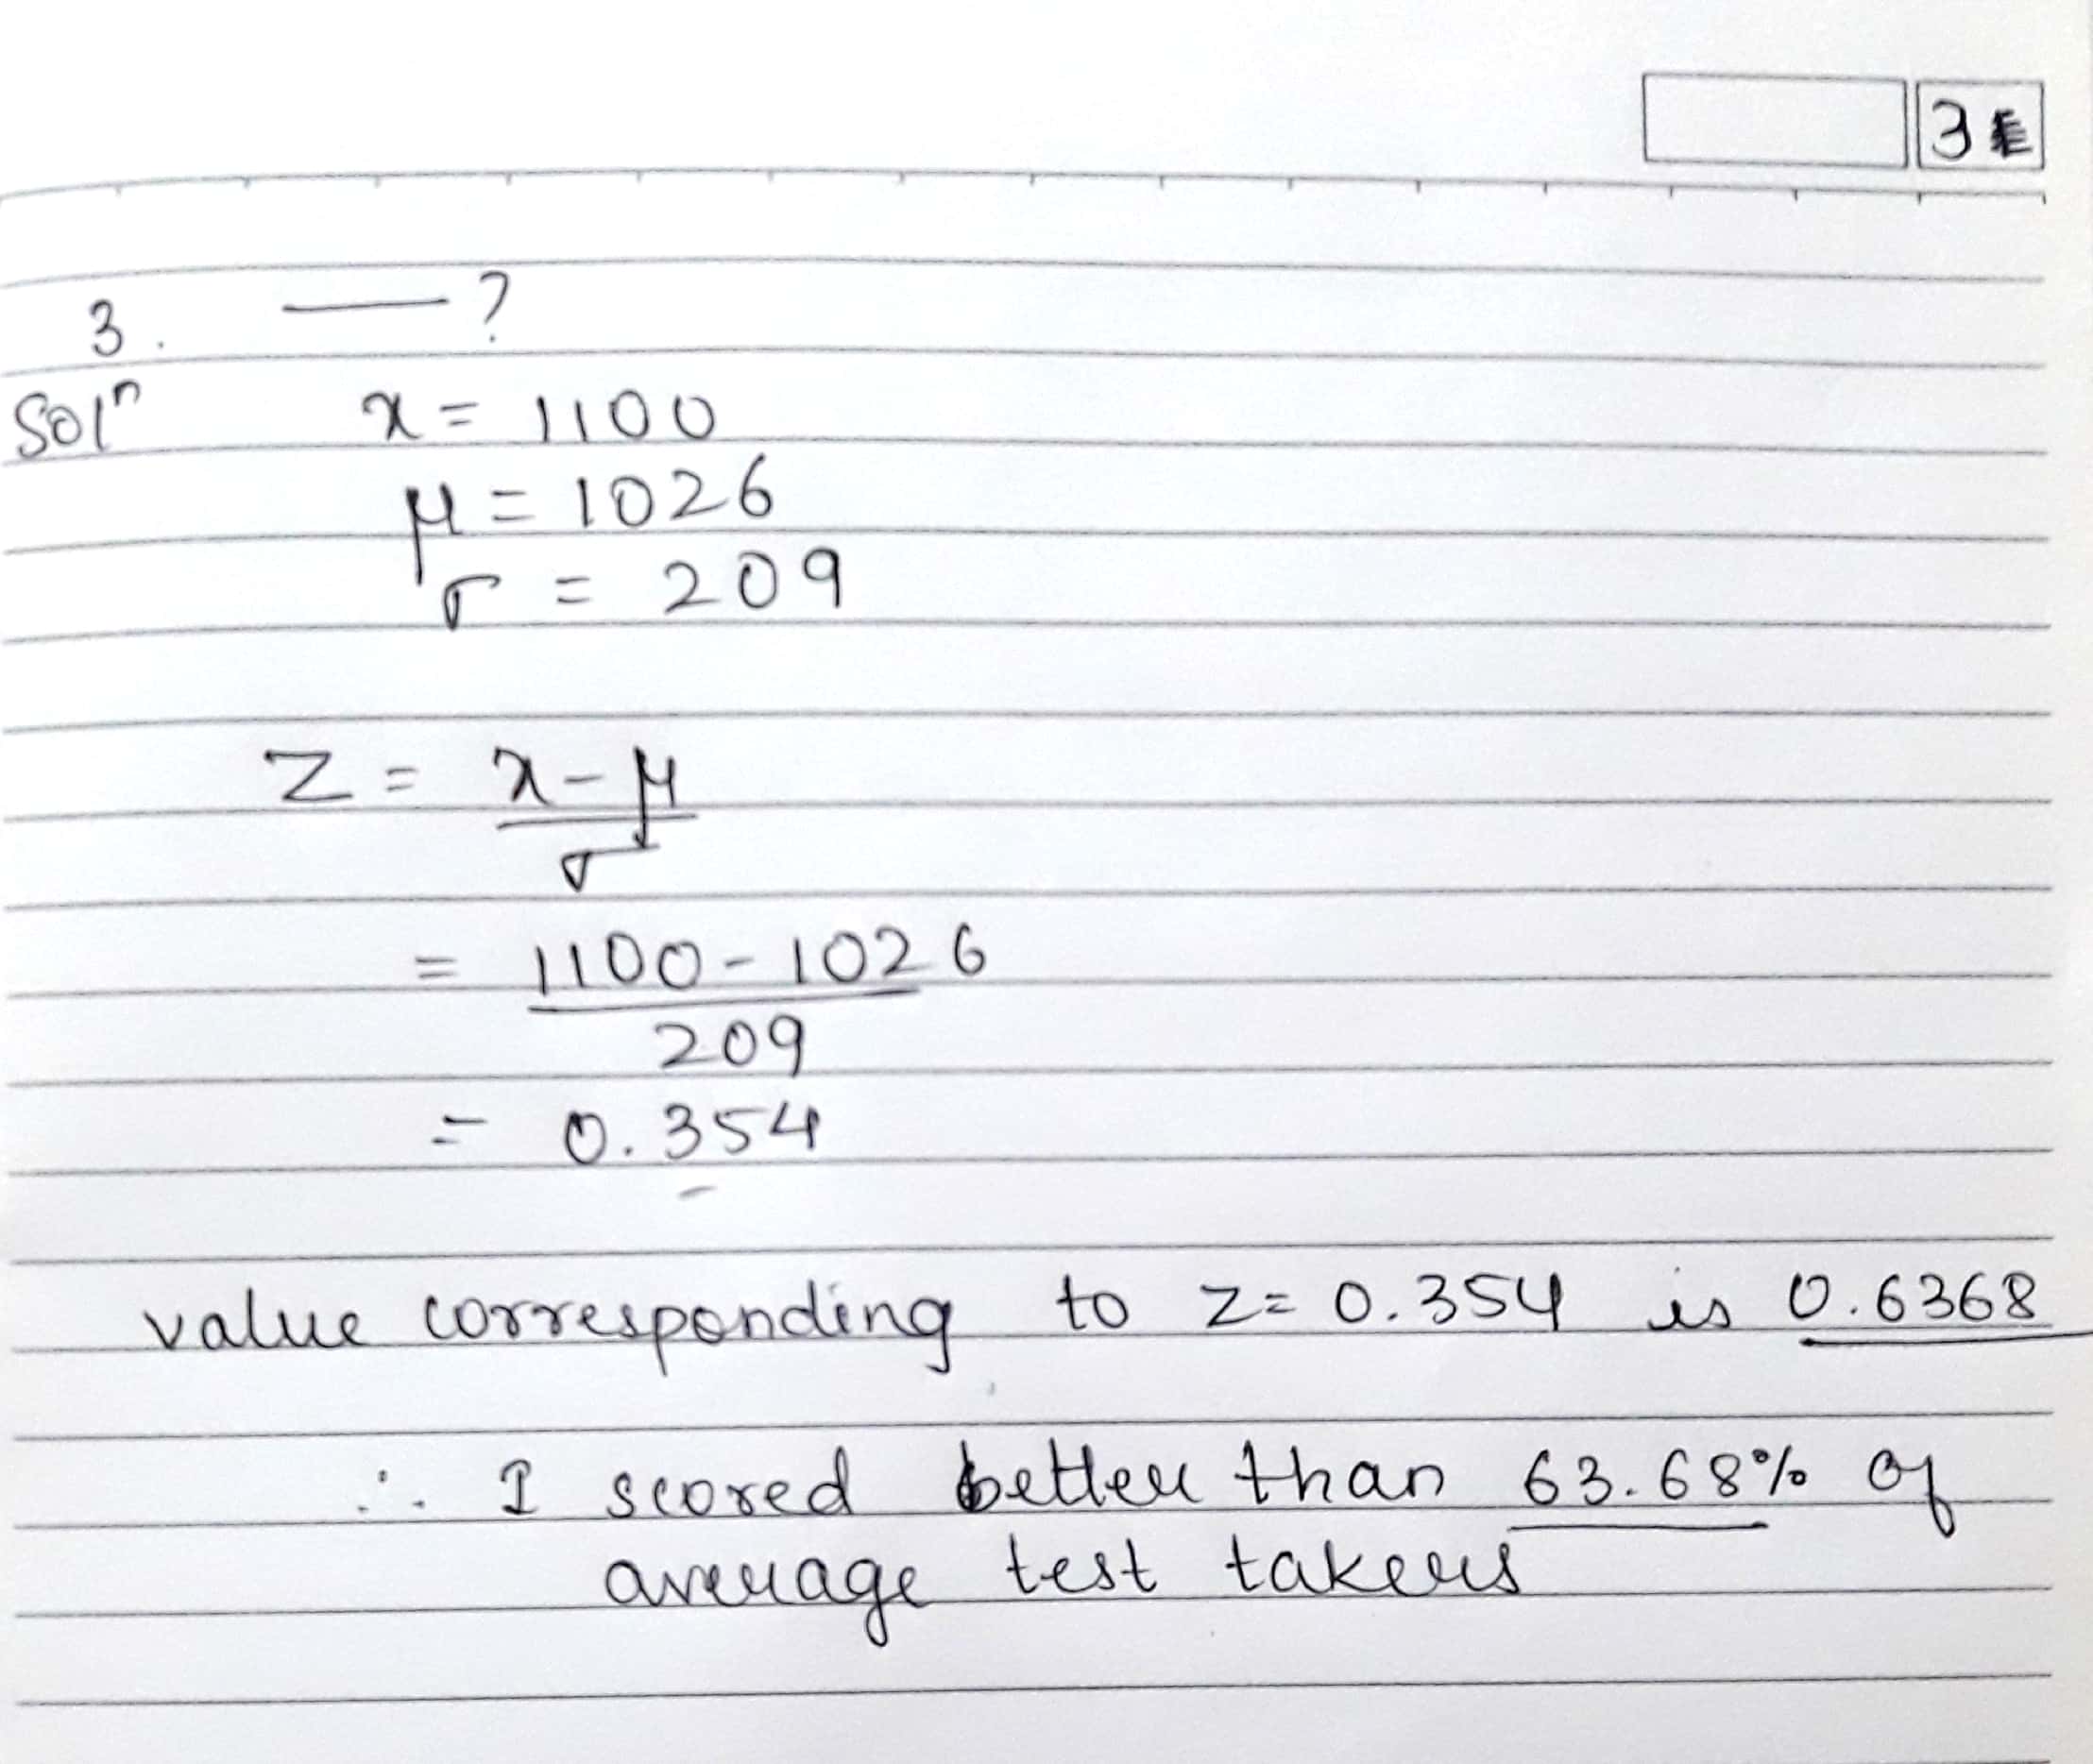 3
3. — ?
Solⁿ x = 1100
μ = 1026
σ = 209
Z = x - μ
σ
= 1100 - 1026
209
= 0.354
value corresponding to Z = 0.354 is 0.6368
∴ I scored better than 63.68% of
average test takers